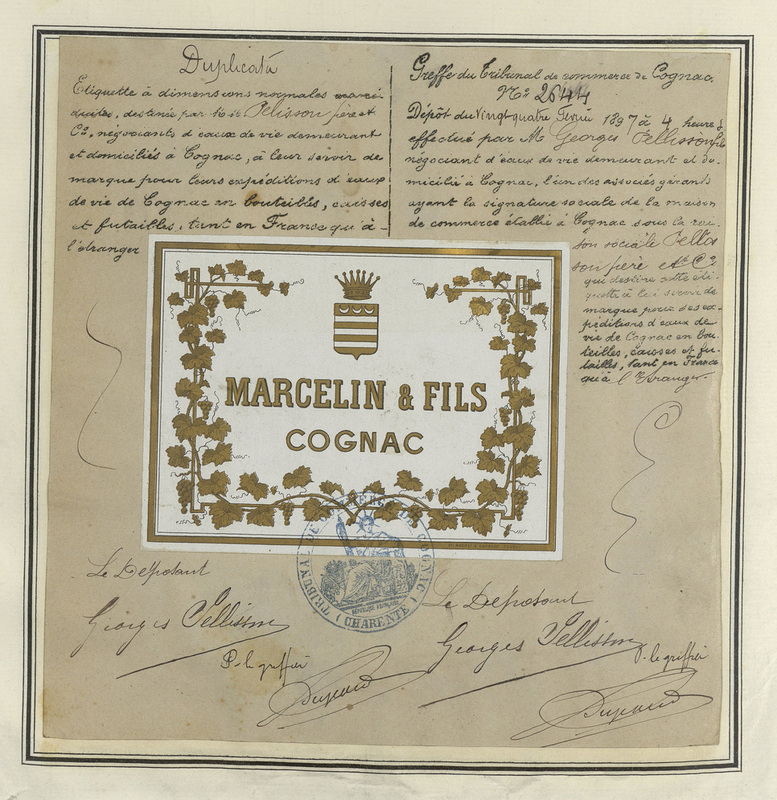 Duplicata
Etiquette à dimensions normales
duites, destinée par M.M. Pellisson père et
Cie, négociants d'eaux de vie demeurant
et domiciliés à Cognac, à leur servir de
marque pour leurs expéditions d'eaux
de vie de Cognac en bouteilles, caisses
et futailles, tant en France qu'à
l'étranger
Greffe du Tribunal de commerce de Cognac.
No 2644
Dépôt du Vingt quatre 1897 à 4 heures
effectué par M. Georges Pellisson fils
négociant d'eaux de vie demeurant et do-
micilié à Cognac, l'un des associés gérants
ayant la signature sociale de la maison
de commerce établie à Cognac sous la rai-
son sociale Pellis
son père et Cie
qui destine cette éti-
quette à lui servir de
marque pour ses ex-
péditions d'eaux de
vie de Cognac en bou-
teilles, caisses et fu-
tailles, tant en France
qu'à l'Etranger.
MARCELIN & FILS
COGNAC
TRIBUNAL DE COMMERCE DE COGNAC
(CHARENTE)
Le Déposant
Georges Pellisson
P. le greffier
Le Déposant
Georges Pellisson
P. le greffier